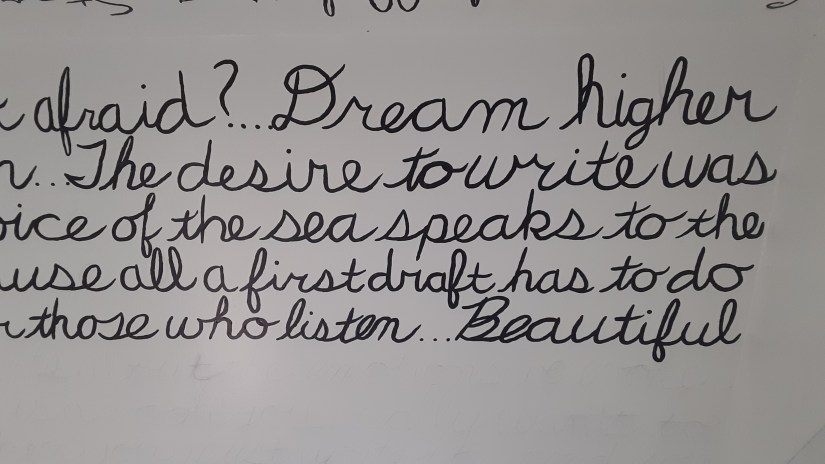 afraid?...Dream higher
...The desire to write was
oice of the sea speaks to the
use all a first draft has to do
those who listen...Beautiful